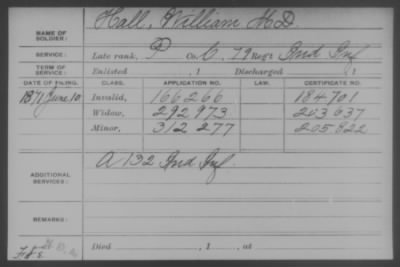 NAME OF SOLDIER: Hall, William H. D.
SERVICE: Late rank, P Co. C, 79 Reg't Ind Inf
TERM OF SERVICE: Enlisted , 1 Discharged , 1
DATE OF FILING. CLASS. APPLICATION NO. LAW. CERTIFICATE NO.
1871 June 10 Invalid, 166266 184701
Widow, 292973 203637
Minor, 312277 205822
ADDITIONAL SERVICES: A 132 Ind Inf
REMARKS:
Died , 1 , at